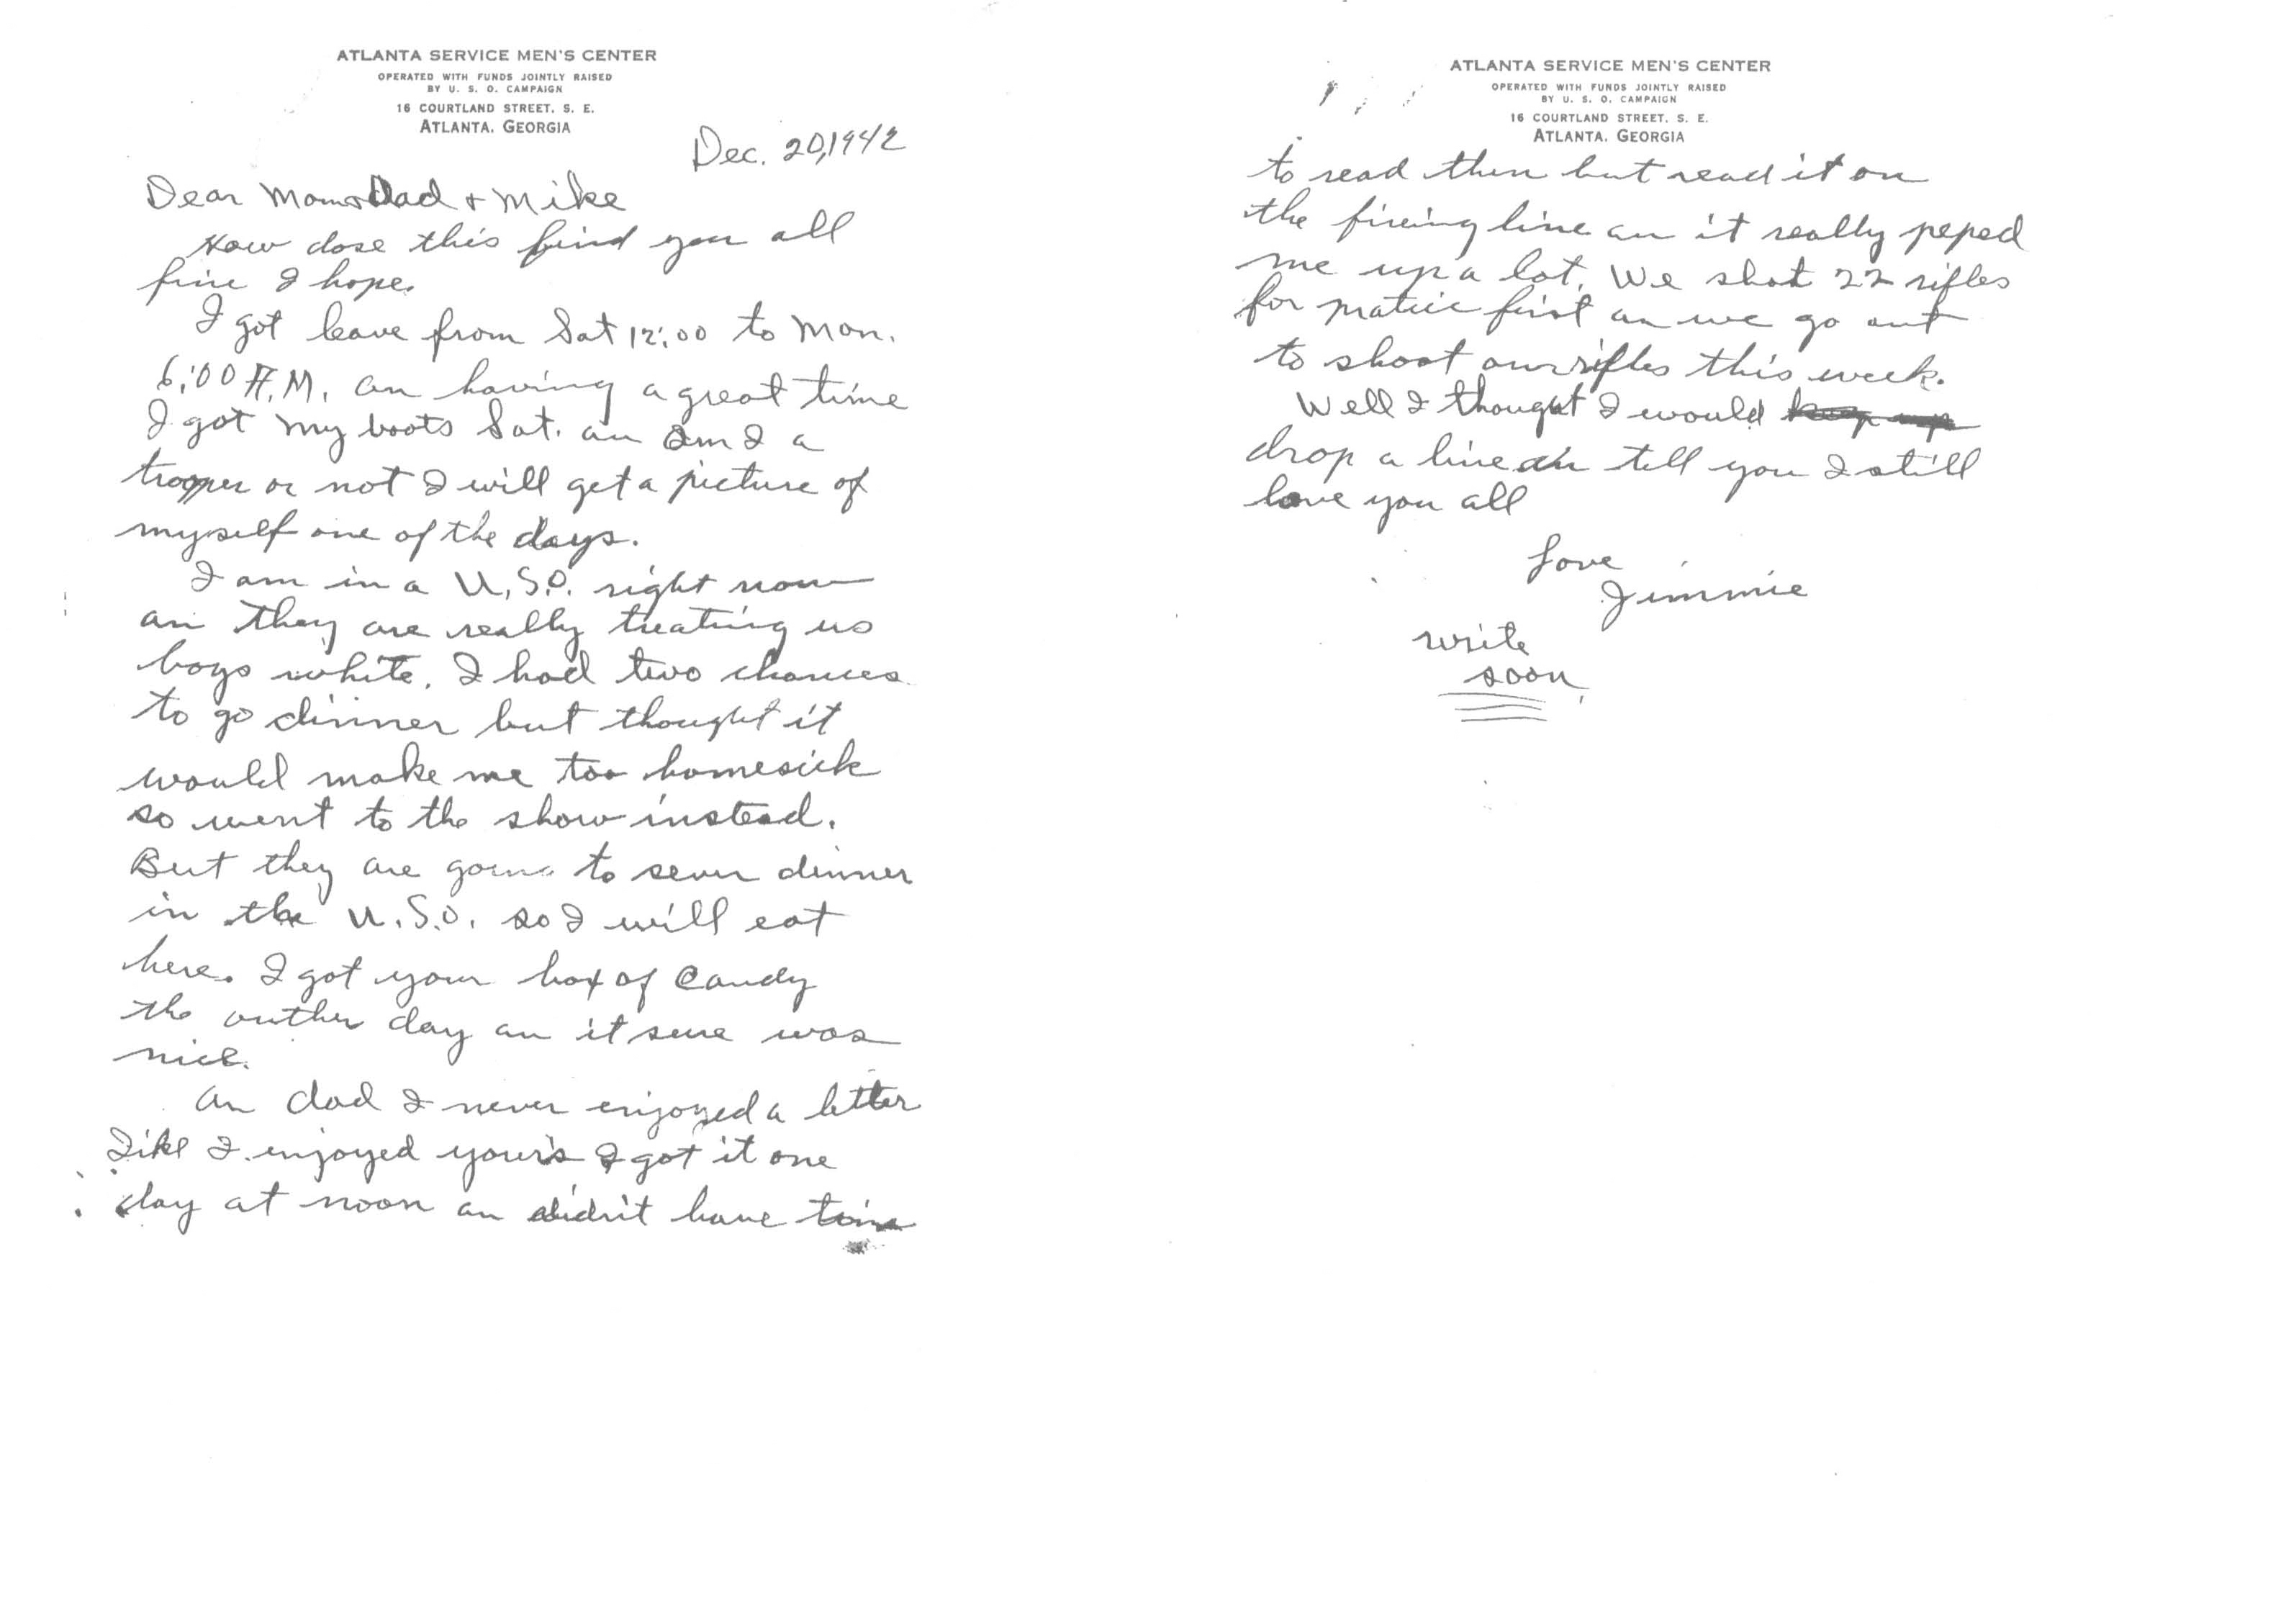 ATLANTA SERVICE MEN'S CENTER
OPERATED WITH FUNDS JOINTLY RAISED
BY U. S. O. CAMPAIGN
16 COURTLAND STREET, S. E.
ATLANTA, GEORGIA
Dec. 20, 1942
Dear Mom & Dad + Mike
How dose this find you all
fine I hope.
I got leave from Sat 12:00 to Mon.
6:00 A.M. an having a great time
I got my boots Sat. an am I a
trooper or not I will get a picture of
myself one of the days.
I am in a U.S.O. right now
an they are really treating us
boys white. I had two chances
to go dinner but thought it
would make me too homesick
so went to the show instead.
But they are going to serv dinner
in the U.S.O. so I will eat
here. I got your box of Candy
the outher day an it sure was
nice.
an dad I never enjoyed a letter
like I enjoyed your's I got it one
day at noon an didn't have time
ATLANTA SERVICE MEN'S CENTER
OPERATED WITH FUNDS JOINTLY RAISED
BY U. S. O. CAMPAIGN
16 COURTLAND STREET, S. E.
ATLANTA, GEORGIA
to read then but read it on
the fireing line an it really peped
me up a lot. We shot 22 rifles
for first an we go out
to shoot our rifles this week.
Well I thought I would
drop a line an tell you I still
love you all
Love
Jimmie
write
soon